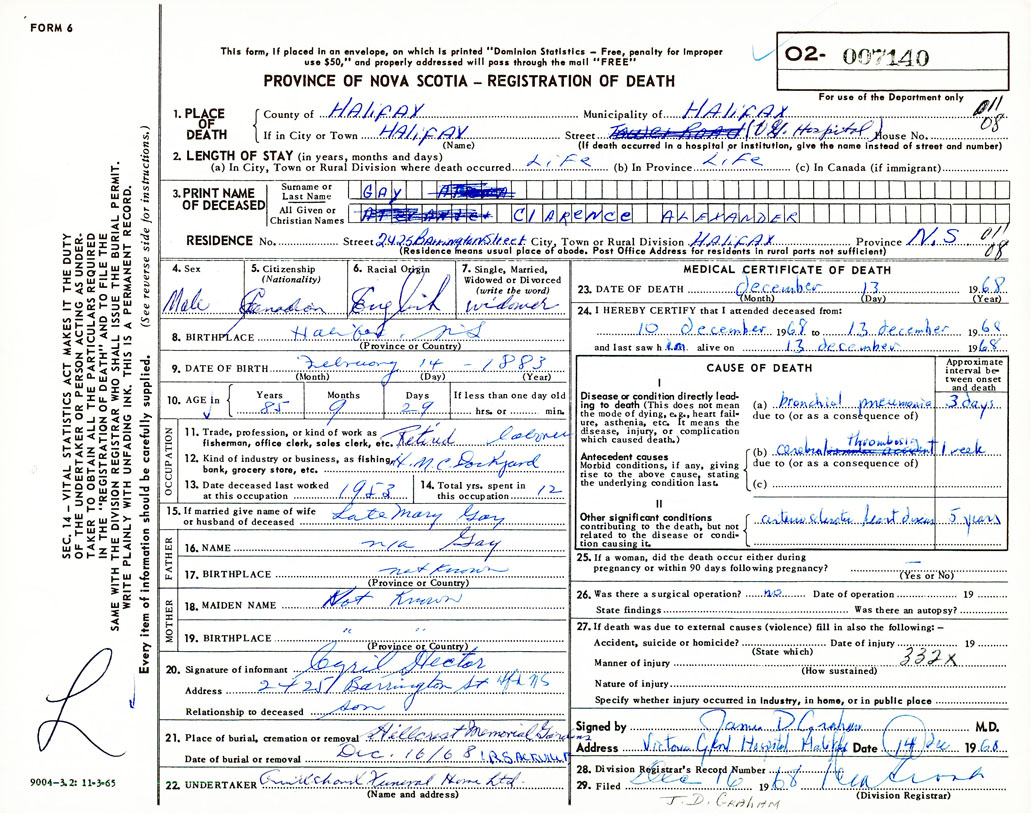 FORM 6
This form, if placed in an envelope, on which is printed "Dominion Statistics – Free, penalty for improper
use $50," and properly addressed will pass through the mail "FREE"
PROVINCE OF NOVA SCOTIA – REGISTRATION OF DEATH
02- 007140
For use of the Department only
011
08
1. PLACE OF DEATH
County of HALIFAX Municipality of HALIFAX
If in City or Town HALIFAX Street (V.G. Hospital) House No.
(Name) (If death occurred in a hospital or institution, give the name instead of street and number)
2. LENGTH OF STAY (in years, months and days)
(a) In City, Town or Rural Division where death occurred LIFE (b) In Province LIFE (c) In Canada (if immigrant)
3. PRINT NAME OF DECEASED
Surname or Last Name GAY
All Given or Christian Names CLARENCE ALEXANDER
RESIDENCE No. Street 2425 Barrington Street City, Town or Rural Division HALIFAX Province N.S 011
08
(Residence means usual place of abode. Post Office Address for residents in rural parts not sufficient)
4. Sex
Male
5. Citizenship
(Nationality)
Canadian
6. Racial Origin
English
7. Single, Married,
Widowed or Divorced
(write the word)
widower
8. BIRTHPLACE Halifax, NS
(Province or Country)
9. DATE OF BIRTH February 14 - 1883
(Month) (Day) (Year)
10. AGE in Years Months Days If less than one day old
85 9 29 hrs. or min.
OCCUPATION
11. Trade, profession, or kind of work as
fisherman, office clerk, sales clerk, etc. Retired Laborer
12. Kind of industry or business, as fishing,
bank, grocery store, etc. H.M.C Dockyard
13. Date deceased last worked
at this occupation 1953
14. Total yrs. spent in
this occupation 12
15. If married give name of wife
or husband of deceased Late Mary Gay
FATHER
16. NAME n/a Gay
17. BIRTHPLACE not Known
(Province or Country)
MOTHER
18. MAIDEN NAME Not Known
19. BIRTHPLACE " "
(Province or Country)
20. Signature of informant Cyril Hector
Address 2425 Barrington St Hfx NS
Relationship to deceased son
21. Place of burial, cremation or removal Hillcrest Memorial Gardens
Date of burial or removal Dec. 16/68
22. UNDERTAKER Cruikshank Funeral Home Ltd.
(Name and address)
MEDICAL CERTIFICATE OF DEATH
23. DATE OF DEATH december 13 1968
(Month) (Day) (Year)
24. I HEREBY CERTIFY that I attended deceased from:
10 december 1968 to 13 december 1968
and last saw him alive on 13 december 1968
CAUSE OF DEATH
Approximate
interval be-
tween onset
and death
I
Disease or condition directly lead-
ing to death (This does not mean
the mode of dying, e.g., heart fail-
ure, asthenia, etc. It means the
disease, injury, or complication
which caused death.)
(a) bronchial pneumonia 3 days
due to (or as a consequence of)
Antecedent causes
Morbid conditions, if any, giving
rise to the above cause, stating
the underlying condition last.
(b) cerebral thrombosis 1 week
due to (or as a consequence of)
(c)
II
Other significant conditions
contributing to the death, but not
related to the disease or condi-
tion causing it.
arteriosclerotic heart disease 5 years
25. If a woman, did the death occur either during
pregnancy or within 90 days following pregnancy? —
(Yes or No)
26. Was there a surgical operation? no Date of operation 19
State findings Was there an autopsy?
27. If death was due to external causes (violence) fill in also the following: –
Accident, suicide or homicide? Date of injury 19
(State which)
Manner of injury 332X
(How sustained)
Nature of injury
Specify whether injury occurred in industry, in home, or in public place
Signed by James D Graham M.D.
Address Victoria Gen Hospital Halifax Date 14 Dec 1968
28. Division Registrar's Record Number
29. Filed Dec 16 1968
(Division Registrar)
J. D. GRAHAM
SEC. 14 – VITAL STATISTICS ACT MAKES IT THE DUTY
OF THE UNDERTAKER OR PERSON ACTING AS UNDER-
TAKER TO OBTAIN ALL THE PARTICULARS REQUIRED
IN THE "REGISTRATION OF DEATH" AND TO FILE THE
SAME WITH THE DIVISION REGISTRAR WHO SHALL ISSUE THE BURIAL PERMIT.
WRITE PLAINLY WITH UNFADING INK. THIS IS A PERMANENT RECORD.
Every item of information should be carefully supplied. (See reverse side for instructions.)
L
9004–3.2: 11-3-65